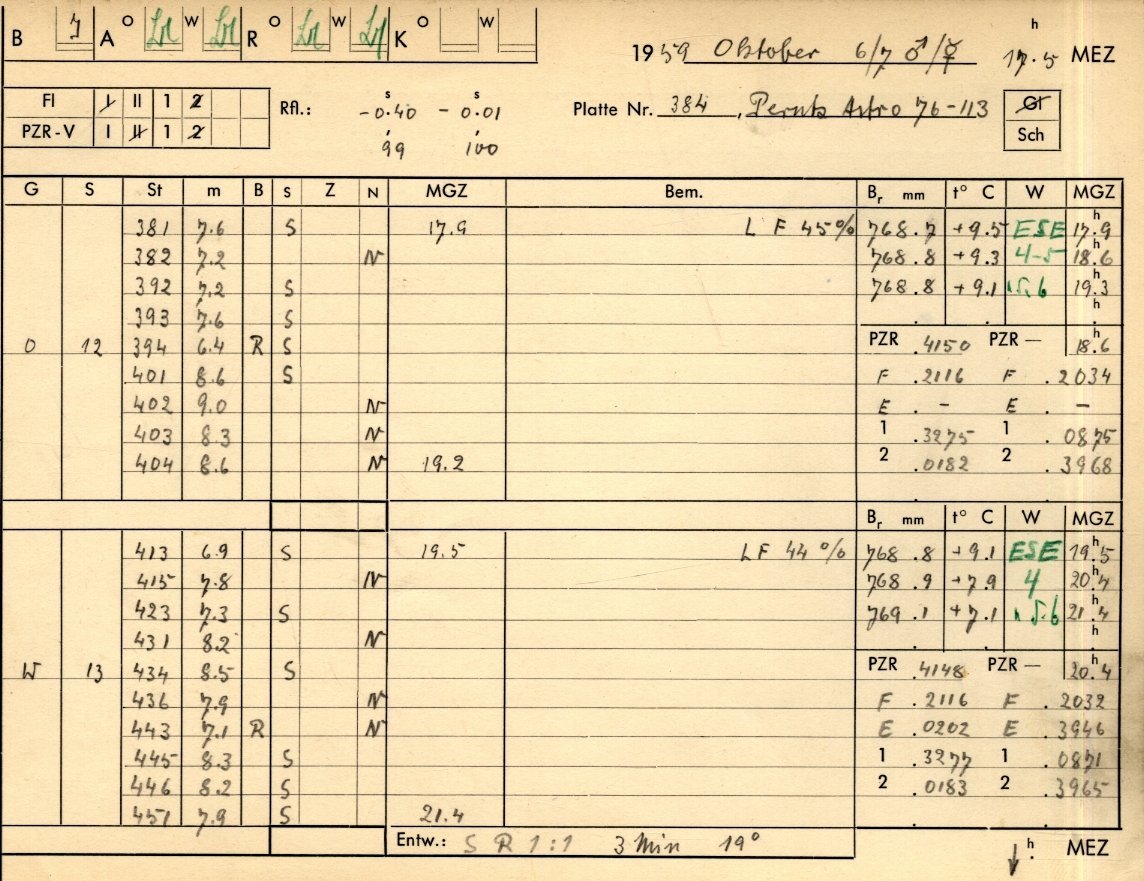 B J A O W R O W K O W
h
1959 Oktober 6/7 ♂/☿ 17.5 MEZ
Fl I II 1 2
PZR-V I II 1 2
Rfl.: -0.40 s - 0.01 s
99 100
Platte Nr. 384, Astro 76-113
Gl
Sch
G S St m B S Z N MGZ Bem. Br mm t° C W MGZ
381 7.6 S 17.9 LF 45% 768.7 +9.5 ESE 17.9 h
382 7.2 N 768.8 +9.3 4-5 18.6 h
392 7.2 S 768.8 +9.1 19.3 h
393 7.6 S . . . h
O 12 394 6.4 R S PZR .4150 PZR — 18.6 h
401 8.6 S F .2116 F .2034
402 9.0 N E . - E . -
403 8.3 N 1 .3275 1 .0875
404 8.6 N 19.2 2 .0182 2 .3968
Br mm t° C W MGZ
413 6.9 S 19.5 LF 44% 768.8 +9.1 ESE 19.5 h
415 7.8 N 768.9 +7.9 4 20.4 h
423 7.3 S 769.1 +7.1 21.4 h
431 8.2 N . . . h
W 13 434 8.5 S PZR .4148 PZR — 20.4 h
436 7.9 N F .2116 F .2032
443 7.1 R N E .0202 E .3946
445 8.3 S 1 .3277 1 .0871
446 8.2 S 2 .0183 2 .3965
451 7.9 S 21.4
Entw.: S R 1:1 3 Min 19° h MEZ